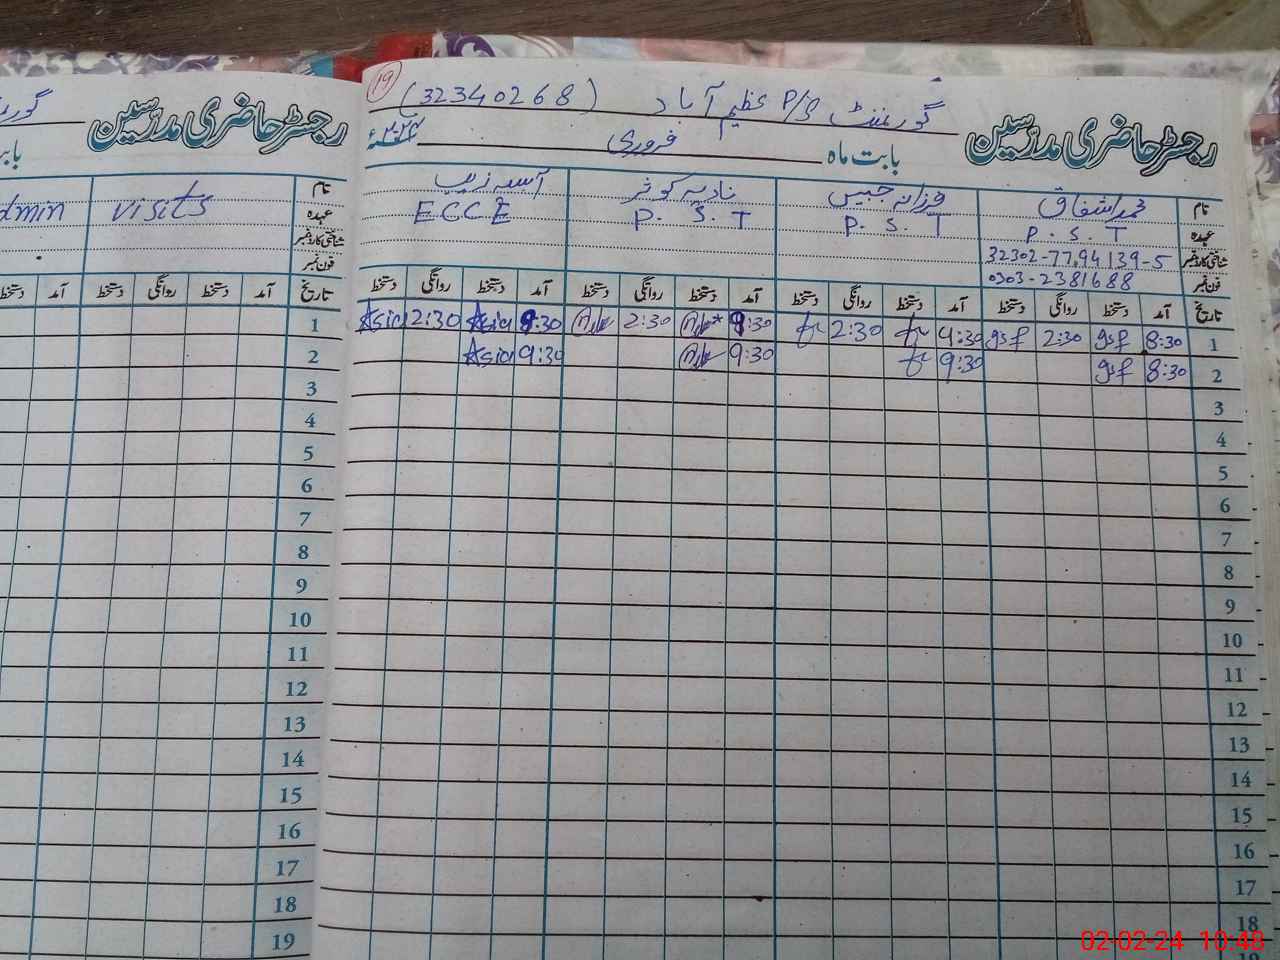 رجسٹر حاضری مدرسین
visits
نام
عہدہ
شناختی کارڈ نمبر
فون نمبر
تاریخ آمد دستخط روانگی دستخط آمد دستخط
1
2
3
4
5
6
7
8
9
10
11
12
13
14
15
16
17
18
19
19
رجسٹر حاضری مدرسین گورنمنٹ P/S عظیم آباد (32340268)
بابت ماہ فروری
نام محمد اشفاق فرزانہ نادیہ کوثر آسیہ
عہدہ P. S. T P. S. T P. S. T ECCE
شناختی کارڈ نمبر 32302-7794139-5
فون نمبر 0303-2381688
تاریخ آمد دستخط روانگی دستخط آمد دستخط روانگی دستخط آمد دستخط روانگی دستخط آمد دستخط روانگی دستخط
1 8:30 2:30 9:30 2:30 9:30 2:30 9:30 Asia 2:30 Asia
2 8:30 9:30 9:30 9:30 Asia
3
4
5
6
7
8
9
10
11
12
13
14
15
16
17
18
02-02-24 10:48